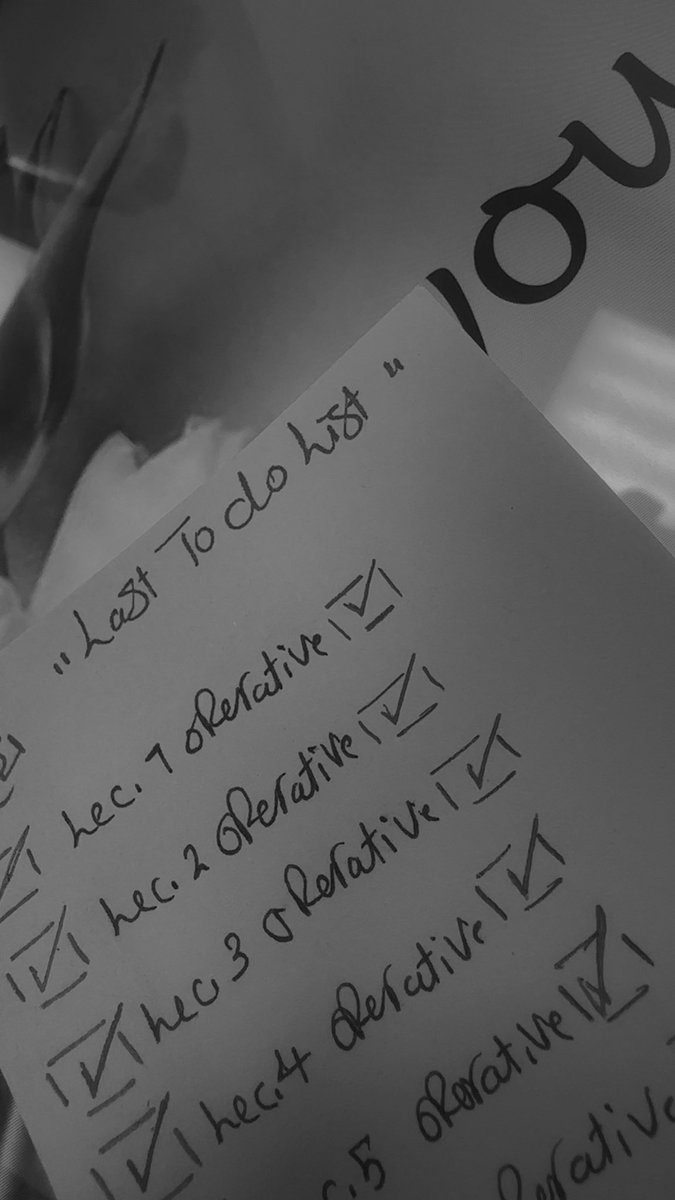 you
"Last To do List"
Lec. 1 operative
Lec. 2 operative
Lec. 3 operative
Lec. 4 operative
c. 5 operative
operative